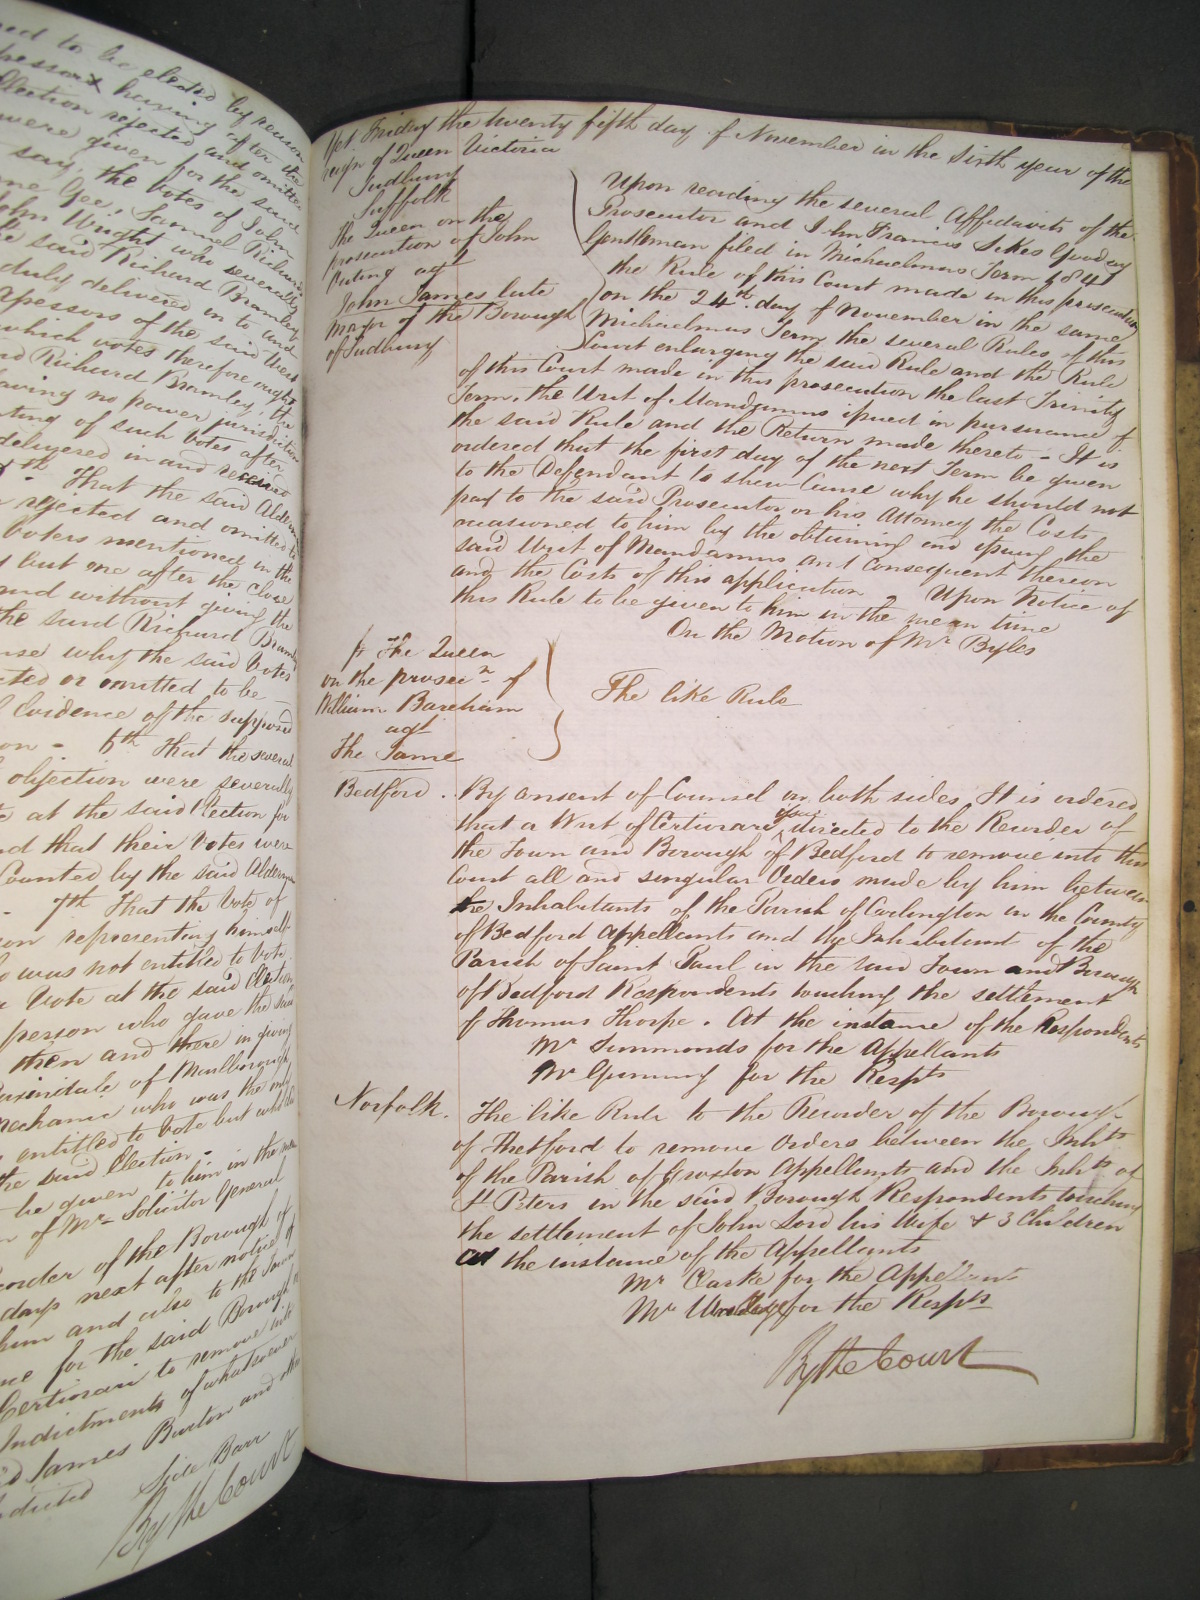 ned to be elected by reason
pressors having after the
Election rejected and omitted
were given for the said
say, the votes of John
me Gee, Samuel Richard
John Wright who severally
e said Richard Bramley
duly delivered in to and
apessors of the said Ward
which votes therefore ought
nd Richard Bramley, the
having no power jurisdiction
ting of such Votes after
delivered in and received
th. That the said Alderman
n rejected and omitted to
Voters mentioned in the
d but one after the close
and without giving the
the said Richard Bramley
use why the said Votes
cted or omitted to be
l Evidence of the supposed
on - 6th That the several
objection were severally
e at the said Election for
nd that their Votes were
Counted by the said Alderman
- 7th That the Vote of
on representing himself
o was not entitled to vote
a Vote at the said Election
person who gave the said
then and there in giving
of Marlborough
mechanic who was the only
entitled to vote but who did
the said Election -
be given to him in the mean
n of Mr Solicitor General
corder of the Borough of
days next after notice of
him and also to the Town
nce for the said Borough
Certiorari to remove into
Indictments of whatsoever
d James Burton and other
ndicted Side Barr
By the Court
Yet Friday the twenty fifth day of November in the Sixth year of the
reign of Queen Victoria
Sudbury
Suffolk
The Queen on the
prosecution of John
agt
John James late
Mayor of the Borough
of Sudbury
Upon reading the several Affidavits of the
Prosecutor and John Francis Sikes Gooday
Gentleman filed in Michaelmas Term 1841
the Rule of this Court made in this prosecution
on the 24th day of November in the same
Michaelmas Term the several Rules of this
Court enlarging the said Rule and the Rule
of this Court made in this prosecution the last Trinity
Term, the Writ of Mandamus ipued in pursuance of
the said Rule and the Return made thereto - It is
ordered that the first day of the next Term be given
to the Defendant to shew Cause why he should not
pay to the said Prosecutor or his Attorney the Costs
occasioned to him by the obtaining and ipuing the
said Writ of Mandamus and Consequent thereon
and the Costs of this application Upon Notice of
this Rule to be given to him in the mean time
On the Motion of Mr Byles
The Queen
on the prosecn of
William Bareham
agt
The Same
The like Rule
Bedford. By consent of Counsel on both sides It is ordered
that a Writ of Certiorari issue directed to the Recorder of
the Town and Borough of Bedford to remove into this
Court all and singular Orders made by him between
the Inhabitants of the Parish of Carlington in the County
of Bedford Appellants and the Inhabitant of the
Parish of Saint Paul in the said Town and Borough
of Bedford Respondents touching the settlement
of Thomas Thorpe. At the instance of the Respondents
Mr Simmonds for the Appellants
Mr Gunning for the Respts
Norfolk. The like Rule to the Recorder of the Borough
of Thetford to remove Orders between the Inhts
of the Parish of Croxton Appellants and the Inhts of
St Peters in the said Borough Respondents touching
the settlement of John Lord his Wife & 3 Children
at the instance of the Appellants
Mr Clarke for the Appellants
Mr for the Respts
By the Court